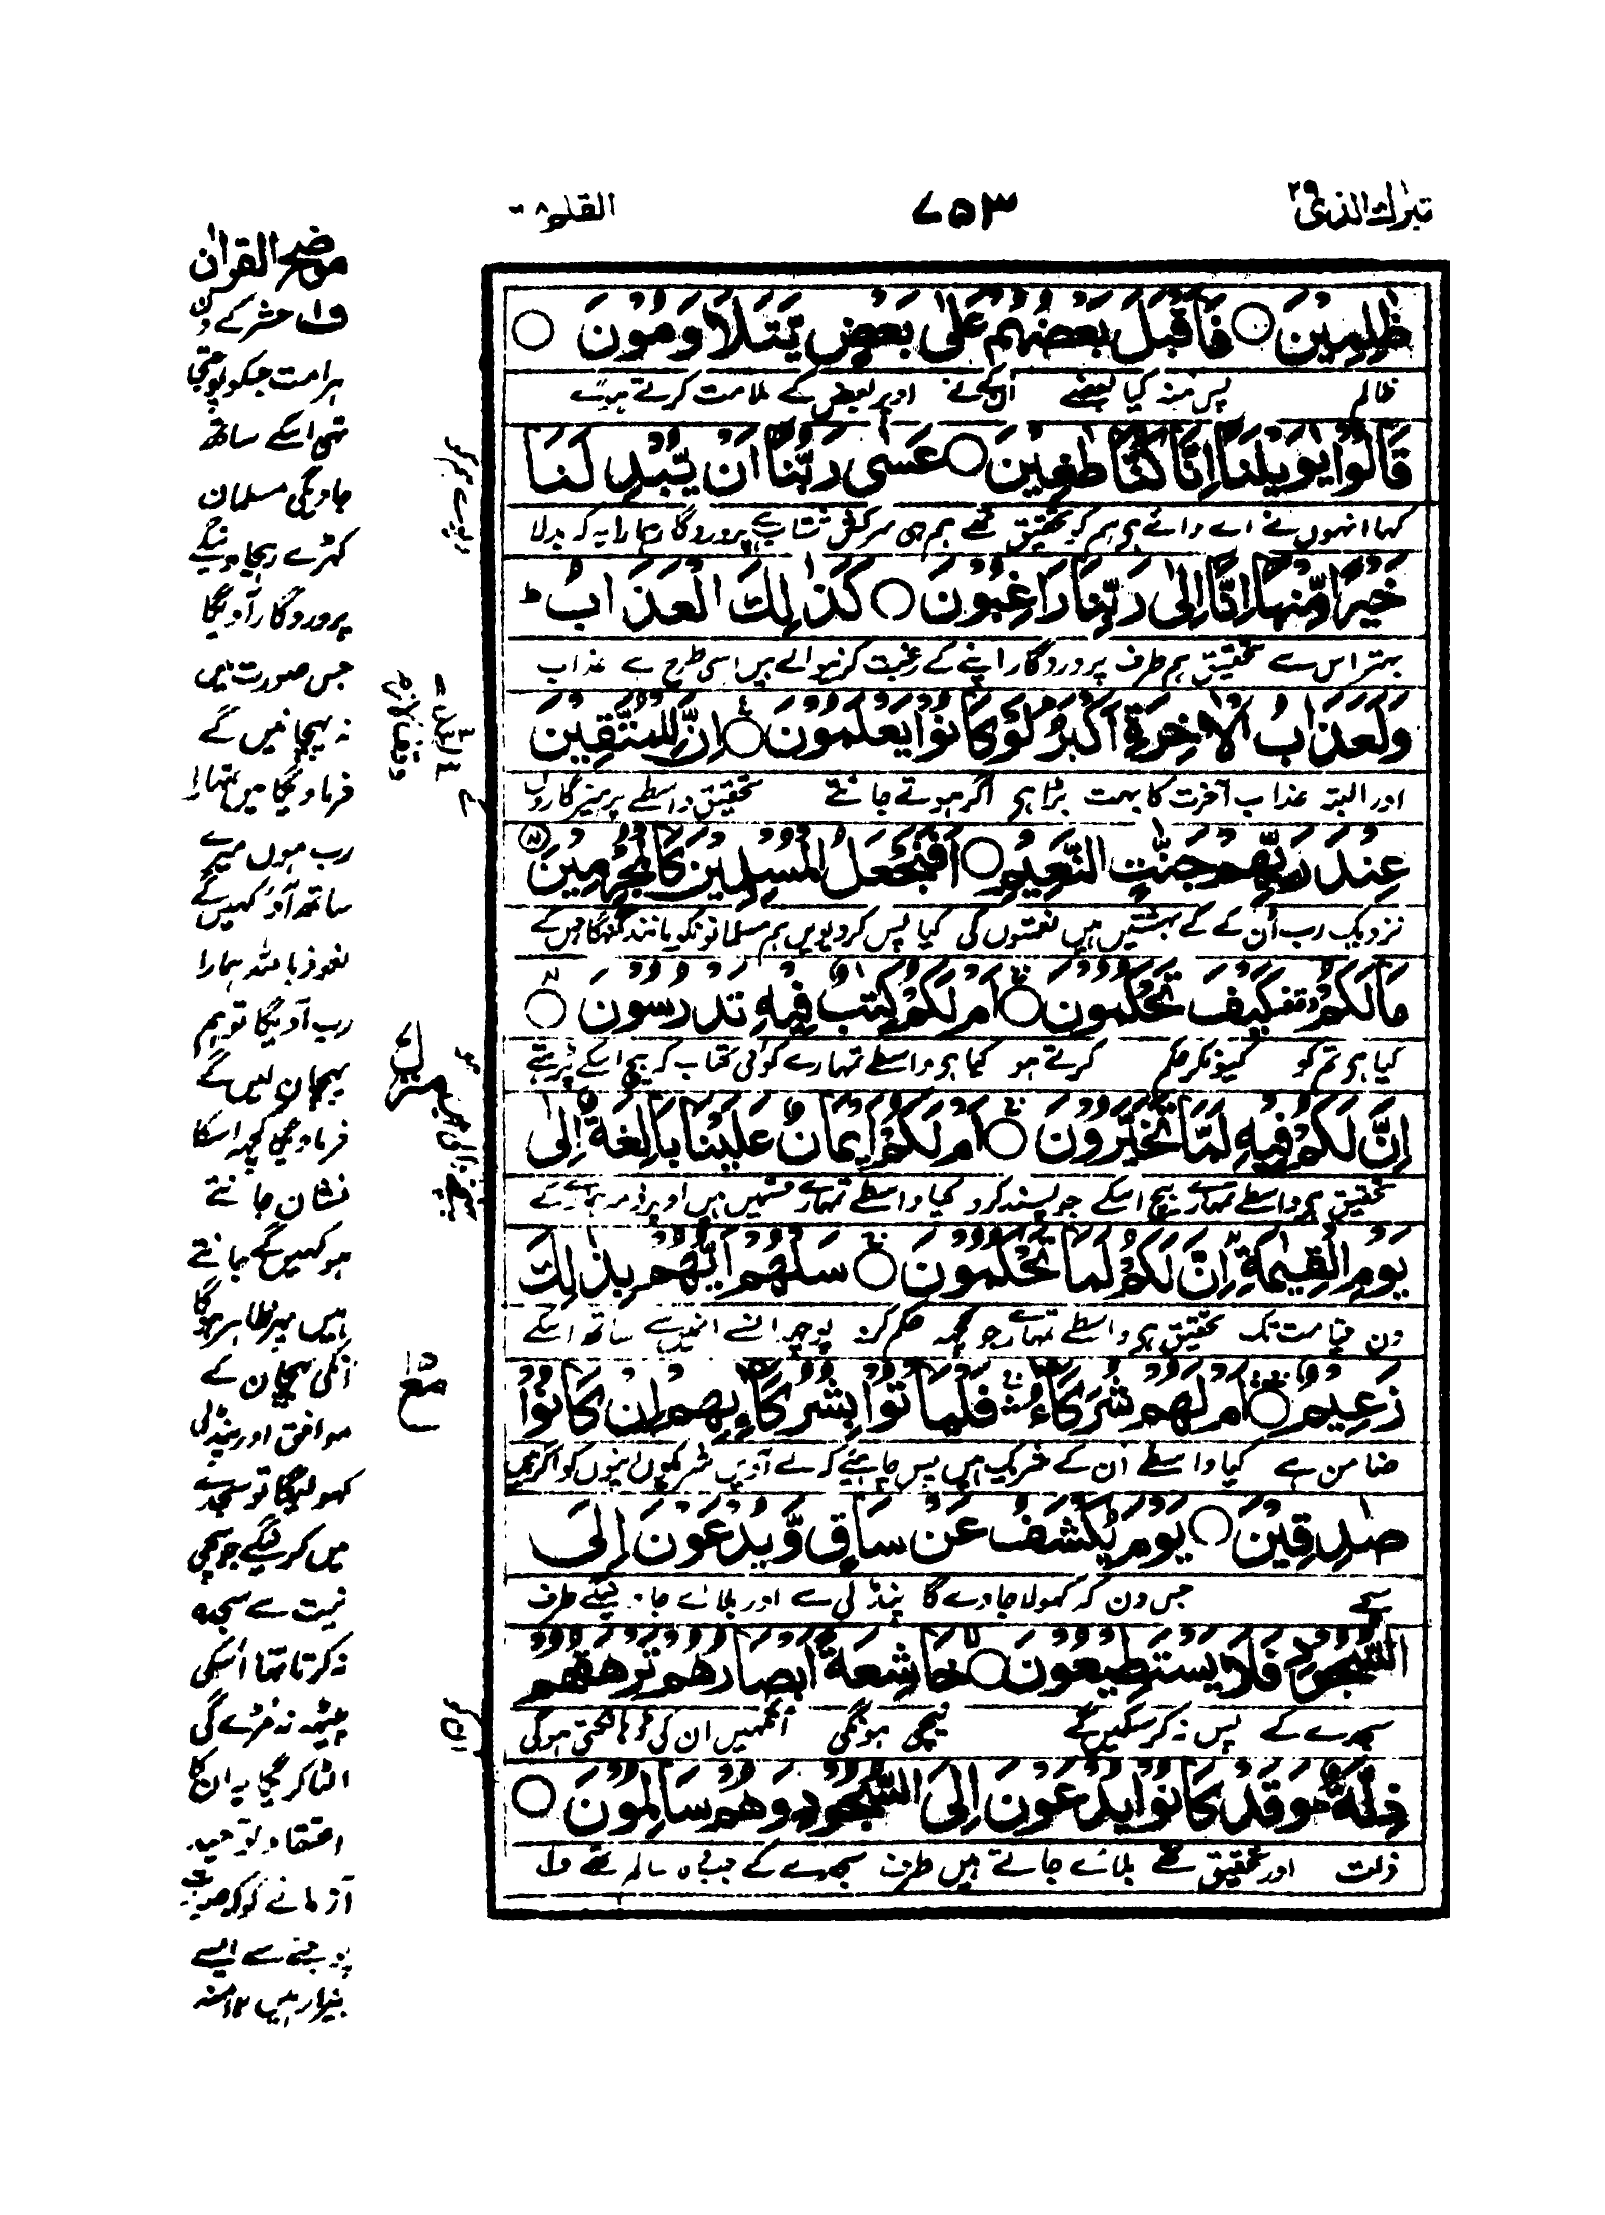 تبرك الذى ٢٩
٧٥٣
القلم ٦٨
ظٰلِمِيْنَ ○ فَاَقْبَلَ بَعْضُهُمْ عَلٰى بَعْضٍ يَّتَلَاوَمُوْنَ ○
ظالم پس منہ کیا بعضے اُنکے نے اوپر بعض کے ملامت کرتے ہوئے
قَالُوْا يٰوَيْلَنَا اِنَّا كُنَّا طٰغِيْنَ ○ عَسٰى رَبُّنَا اَنْ يُّبْدِلَنَا
کہا انہوں نے اے وائے ہی ہم کو تحقیق تھے ہم ہی سرکش شتاب ہے پروردگار ہمارا یہ کہ بدلا
خَيْرًا مِّنْهَا اِنَّا اِلٰى رَبِّنَا رَاغِبُوْنَ ○ كَذٰلِكَ الْعَذَابُ ط
بہتر اس سے تحقیق ہم طرف پروردگار اپنے کے رغبت کرنیوالے ہیں اسی طرح ہے عذاب
وَلَعَذَابُ الْاٰخِرَةِ اَكْبَرُ لَوْ كَانُوْا يَعْلَمُوْنَ ○ اِنَّ لِلْمُتَّقِيْنَ
اور البتہ عذاب آخرت کا بہت بڑا ہی اگر ہوتے جانتے تحقیق واسطے پرہیزگاروں
عِنْدَ رَبِّهِمْ جَنّٰتِ النَّعِيْمِ ○ اَفَنَجْعَلُ الْمُسْلِمِيْنَ كَالْمُجْرِمِيْنَ ○
نزدیک رب اُن کے کے بہشتیں ہیں نعمتوں کی کیا پس کر دیویں ہم مسلمانونکو مانند گنہگاروں کے
مَا لَكُمْ كَيْفَ تَحْكُمُوْنَ ○ اَمْ لَكُمْ كِتٰبٌ فِيْهِ تَدْرُسُوْنَ ○
کیا ہی تم کو کیونکر حکم کرتے ہو کیا ہی واسطے تمہارے کوئی کتاب کہ بیچ اسکے پڑہتے
اِنَّ لَكُمْ فِيْهِ لَمَا تَخَيَّرُوْنَ ○ اَمْ لَكُمْ اَيْمَانٌ عَلَيْنَا بَالِغَةٌ اِلٰى
تحقیق ہی واسطے تمہارے بیچ اسکے جو پسند کرو کیا واسطے تمہارے قسمیں ہیں اوپر ذمہ ہمارے کے
يَوْمِ الْقِيٰمَةِ اِنَّ لَكُمْ لَمَا تَحْكُمُوْنَ ○ سَلْهُمْ اَيُّهُمْ بِذٰلِكَ
دن قیامت تک تحقیق ہی واسطے تمہارے جو کچھہ حکم کرو پوچھہ انسے انمیں سے ساتھ اسکے
زَعِيْمٌ ○ اَمْ لَهُمْ شُرَكَاءُ فَلْيَاْتُوْا بِشُرَكَائِهِمْ اِنْ كَانُوْا
ضامن ہے کیا واسطے اُن کے شریک ہیں پس چاہئیے کہ لے آویں شریکوں اپنوں کو اگر ہیں
صٰدِقِيْنَ ○ يَوْمَ يُكْشَفُ عَنْ سَاقٍ وَّيُدْعَوْنَ اِلَى
سچے جس دن کہ کھولا جاوے گا پنڈلی سے اور بلائے جاویں گے طرف
السُّجُوْدِ فَلَا يَسْتَطِيْعُوْنَ ○ خَاشِعَةً اَبْصَارُهُمْ تَرْهَقُهُمْ
سجدے کے پس نہ کر سکیں گے نیچی ہونگی آنکھیں ان کی ڈہانکتی ہوگی
ذِلَّةٌ وَقَدْ كَانُوْا يُدْعَوْنَ اِلَى السُّجُوْدِ وَهُمْ سَالِمُوْنَ ○
ذلت اور تحقیق تھے بلائے جاتے ہیں طرف سجدے کے جب وہ سالم تھے ف۱
موضح القران
ف۱ حشر کے دن
ہر امت جسکو پوجتی
تھی اسکے ساتھ
جاوینگی مسلمان
کھڑے رہجاوینگے
پروردگار آویگا
جس صورت میں
نہ پہچانیں گے
فرماویگا میں تمہارا
رب ہوں میرے
ساتھ آؤ کہیں گے
نعوذ باللہ ہمارا
رب آویگا تو ہم
پہچان لیں گے
فرماویگا کچھہ اسکا
نشان جانتے
ہو کہیں گے جانتے
ہیں پھر ظاہر ہوگا
اُنکی پہچان کے
موافق اور پنڈلی
کھولیگا تو سجدے
میں گرینگے جو سچی
نیت سے سجدہ
نہ کرتا تھا اُسکی
پیٹھہ نہ مڑے گی
الٹا گریگا یہ ان کا
اعتقاد توحید
آزمانے کو کہ صورت
پوجنے سے ایسے
بیزار ہیں ۱۲ منہ
منزل
مع